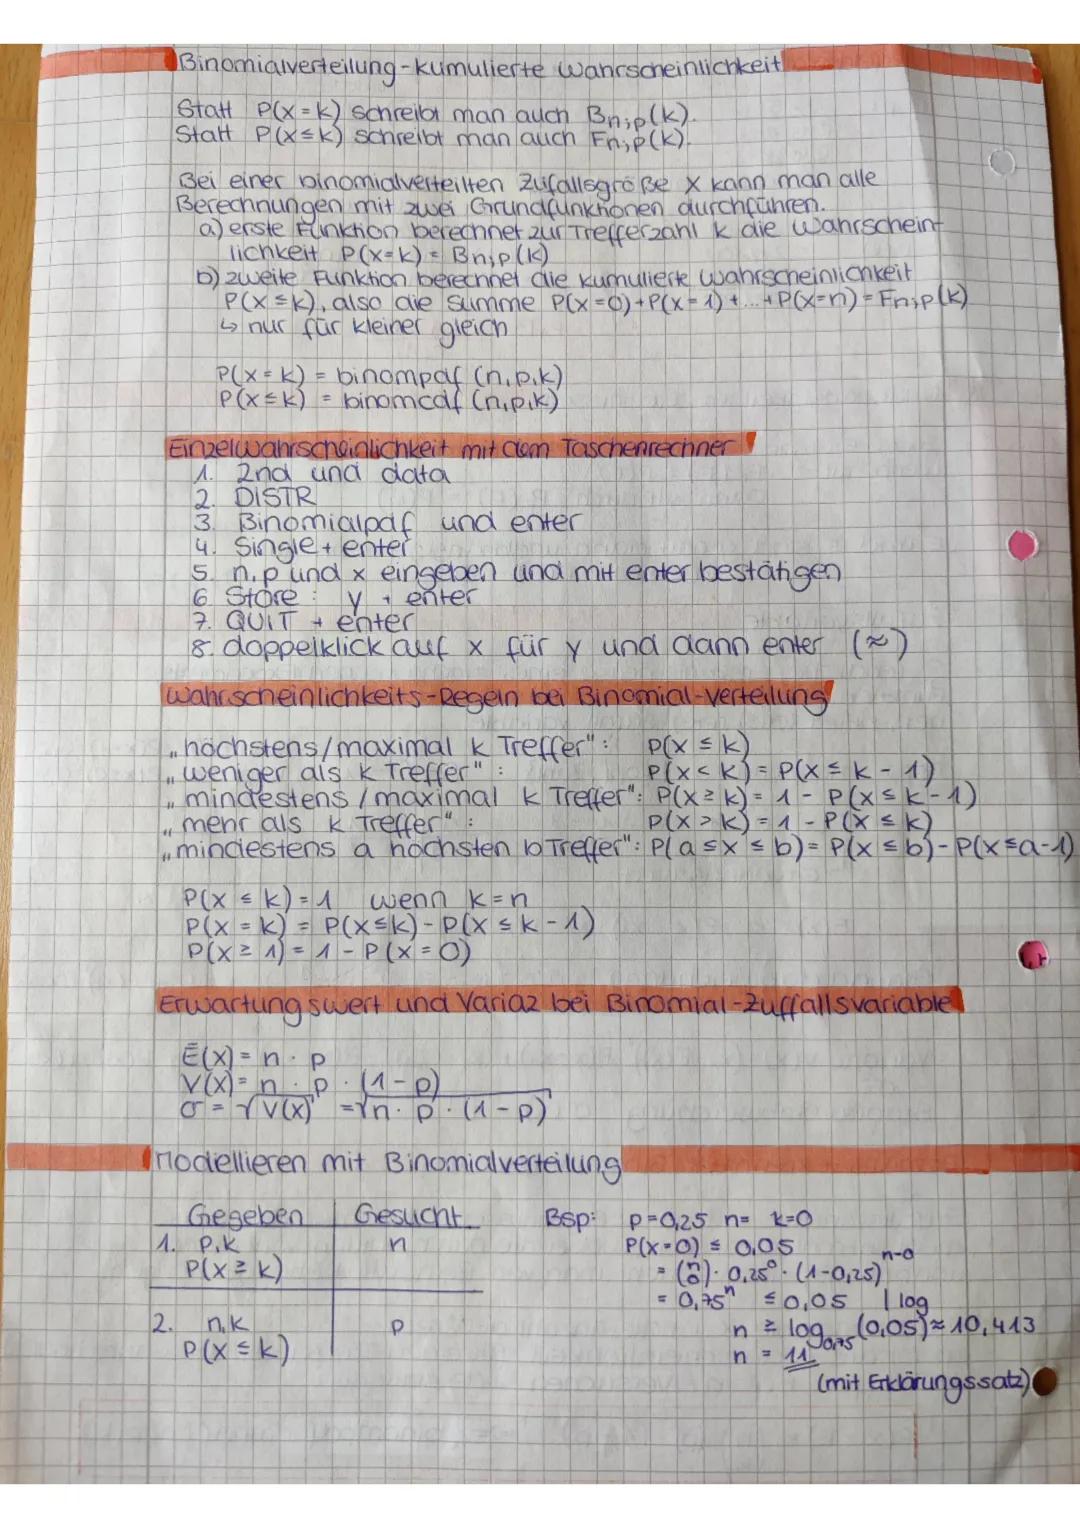 Binomialverteilung-kumulierte Wahrscheinlichkeit
Statt P(X=k) schreibt man auch Bn;p(k).
Statt P(X≤k) schreibt man auch Fn;p(k).
Bei einer binomialverteilten Zufallsgröße X kann man alle
Berechnungen mit zwei Grundfunktionen durchführen.
a) erste Funktion berechnet zur Trefferzahl k die Wahrschein-
lichkeit P(X=k) = Bn;p(k)
b) zweite Funktion berechnet die kumulierte Wahrscheinlichkeit
P(X≤k), also die Summe P(X=0)+P(X=1)+...+P(X=n) = Fn;p(k)
↳ nur für kleiner gleich
P(X=k) = binompdf (n,p,k)
P(X≤k) = binomcdf (n,p,k)
Einzelwahrscheinlichkeit mit dem Taschenrechner
1. 2nd und data
2. DISTR
3. Binomialpdf und enter
4. Single + enter
5. n,p und x eingeben und mit enter bestätigen
6. Store: y + enter
7. QUIT + enter
8. doppelklick auf x für y und dann enter (≈)
Wahrscheinlichkeits-Regeln bei Binomial-Verteilung
„höchstens/maximal k Treffer": P(X ≤ k)
„weniger als k Treffer": P(X < k) = P(X ≤ k - 1)
„mindestens/maximal k Treffer": P(X ≥ k) = 1 - P(X ≤ k-1)
„mehr als k Treffer": P(X > k) = 1 - P(X ≤ k)
„mindestens a höchsten b Treffer": P(a ≤ X ≤ b) = P(X ≤ b) - P(X ≤ a-1)
P(X ≤ k) = 1 wenn k = n
P(X = k) = P(X≤k) - P(X ≤ k - 1)
P(X ≥ 1) = 1 - P(X = 0)
Erwartungswert und Variaz bei Binomial-Zuffallsvariable
E(X) = n · p
V(X) = n · p · (1-p)
σ = √V(X) = √n · p · (1-p)
Modellieren mit Binomialverteilung
Gegeben Gesucht Bsp: p=0,25 n= k=0
1. p,k n P(X=0) ≤ 0,05
P(X ≥ k) = (n 0) · 0,25⁰ · (1-0,25)ⁿ⁻⁰
= 0,75ⁿ ≤ 0,05 | log
2. n,k p n ≥ log0,75 (0,05) ≈ 10,413
P(X ≤ k) n = 11
(mit Erklärungssatz)